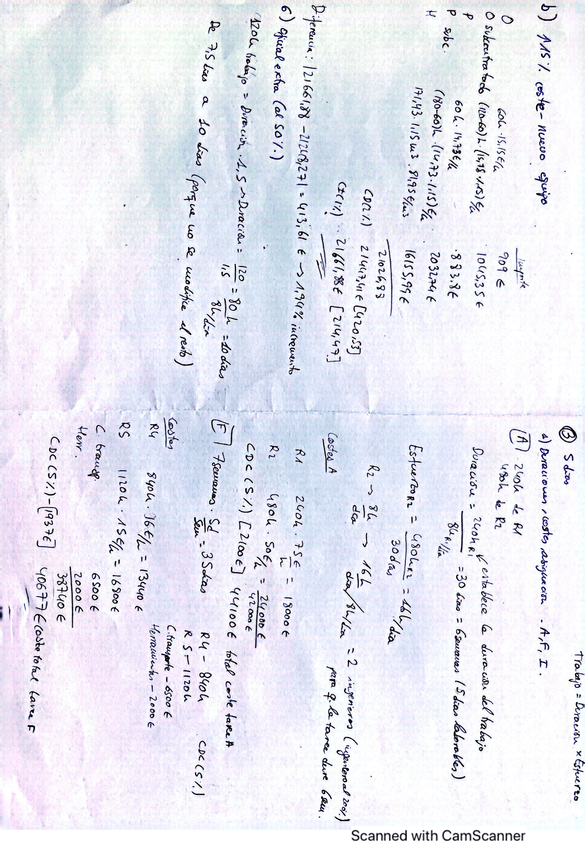 b) 115% coste - nuevo equipo
Importe
O 60h · 15,15€/h 909 €
O subcontratado (120-60)h · (15,15·1,15)€/h 1045,35 €
P 60h · 14,73€/h 883,8 €
P subc. (180-60)h · (14,73·1,15)€/h 2032,74 €
H 171,43 · 1,15 m3 · 81,95€/m3 16155,94 €
21026,83
CD(2%) 21447,41 € [420,53]
CI(1%) 21661,88 € [214,47]
Diferencia: 21661,88 - 21248,27 = 413,61 € → 1,94% incremento
6) oficial extra (al 50%)
120h trabajo = Duración · 1,5 → Duración = 120 / 1,5 = 80h / 8h/día = 10 días
De 7,5 días a 10 días (porque no se modifica el resto)
Trabajo = Duración × Esfuerzo
③ 5 días
a) Duraciones, costes, asignación. A, F, I.
[A] 240h de R1
480h de R2
establece la duración del trabajo
Duración = 240h R1 / 8h R1/día = 30 días = 6 semanas (5 días laborables)
Esfuerzo R2 = 480h R2 / 30 días = 16h/día
R2 → 8h/día → 16h/día / 8h/día = 2 ingenieros (ingeniero al 200%)
para q la tarea dure 6 sem.
Costes A
R1 240h · 75€/h = 18000 €
R2 480h · 50€/h = 24000 €
42000 €
CDC (5%) [2100€] 44100 € total coste tarea A
[F] 7 semanas · 5d/sem = 35 días
R4 - 840h
R5 - 1120h
C. transporte - 6500 €
Herramientas - 2000 €
CDC (5%)
Costes
R4 840h · 16€/h = 13440 €
R5 1120h · 15€/h = 16800 €
C. transp 6500 €
Herr. 2000 €
38740 €
CDC (5%) - [1937€] 40677 € coste total tarea F
Scanned with CamScanner